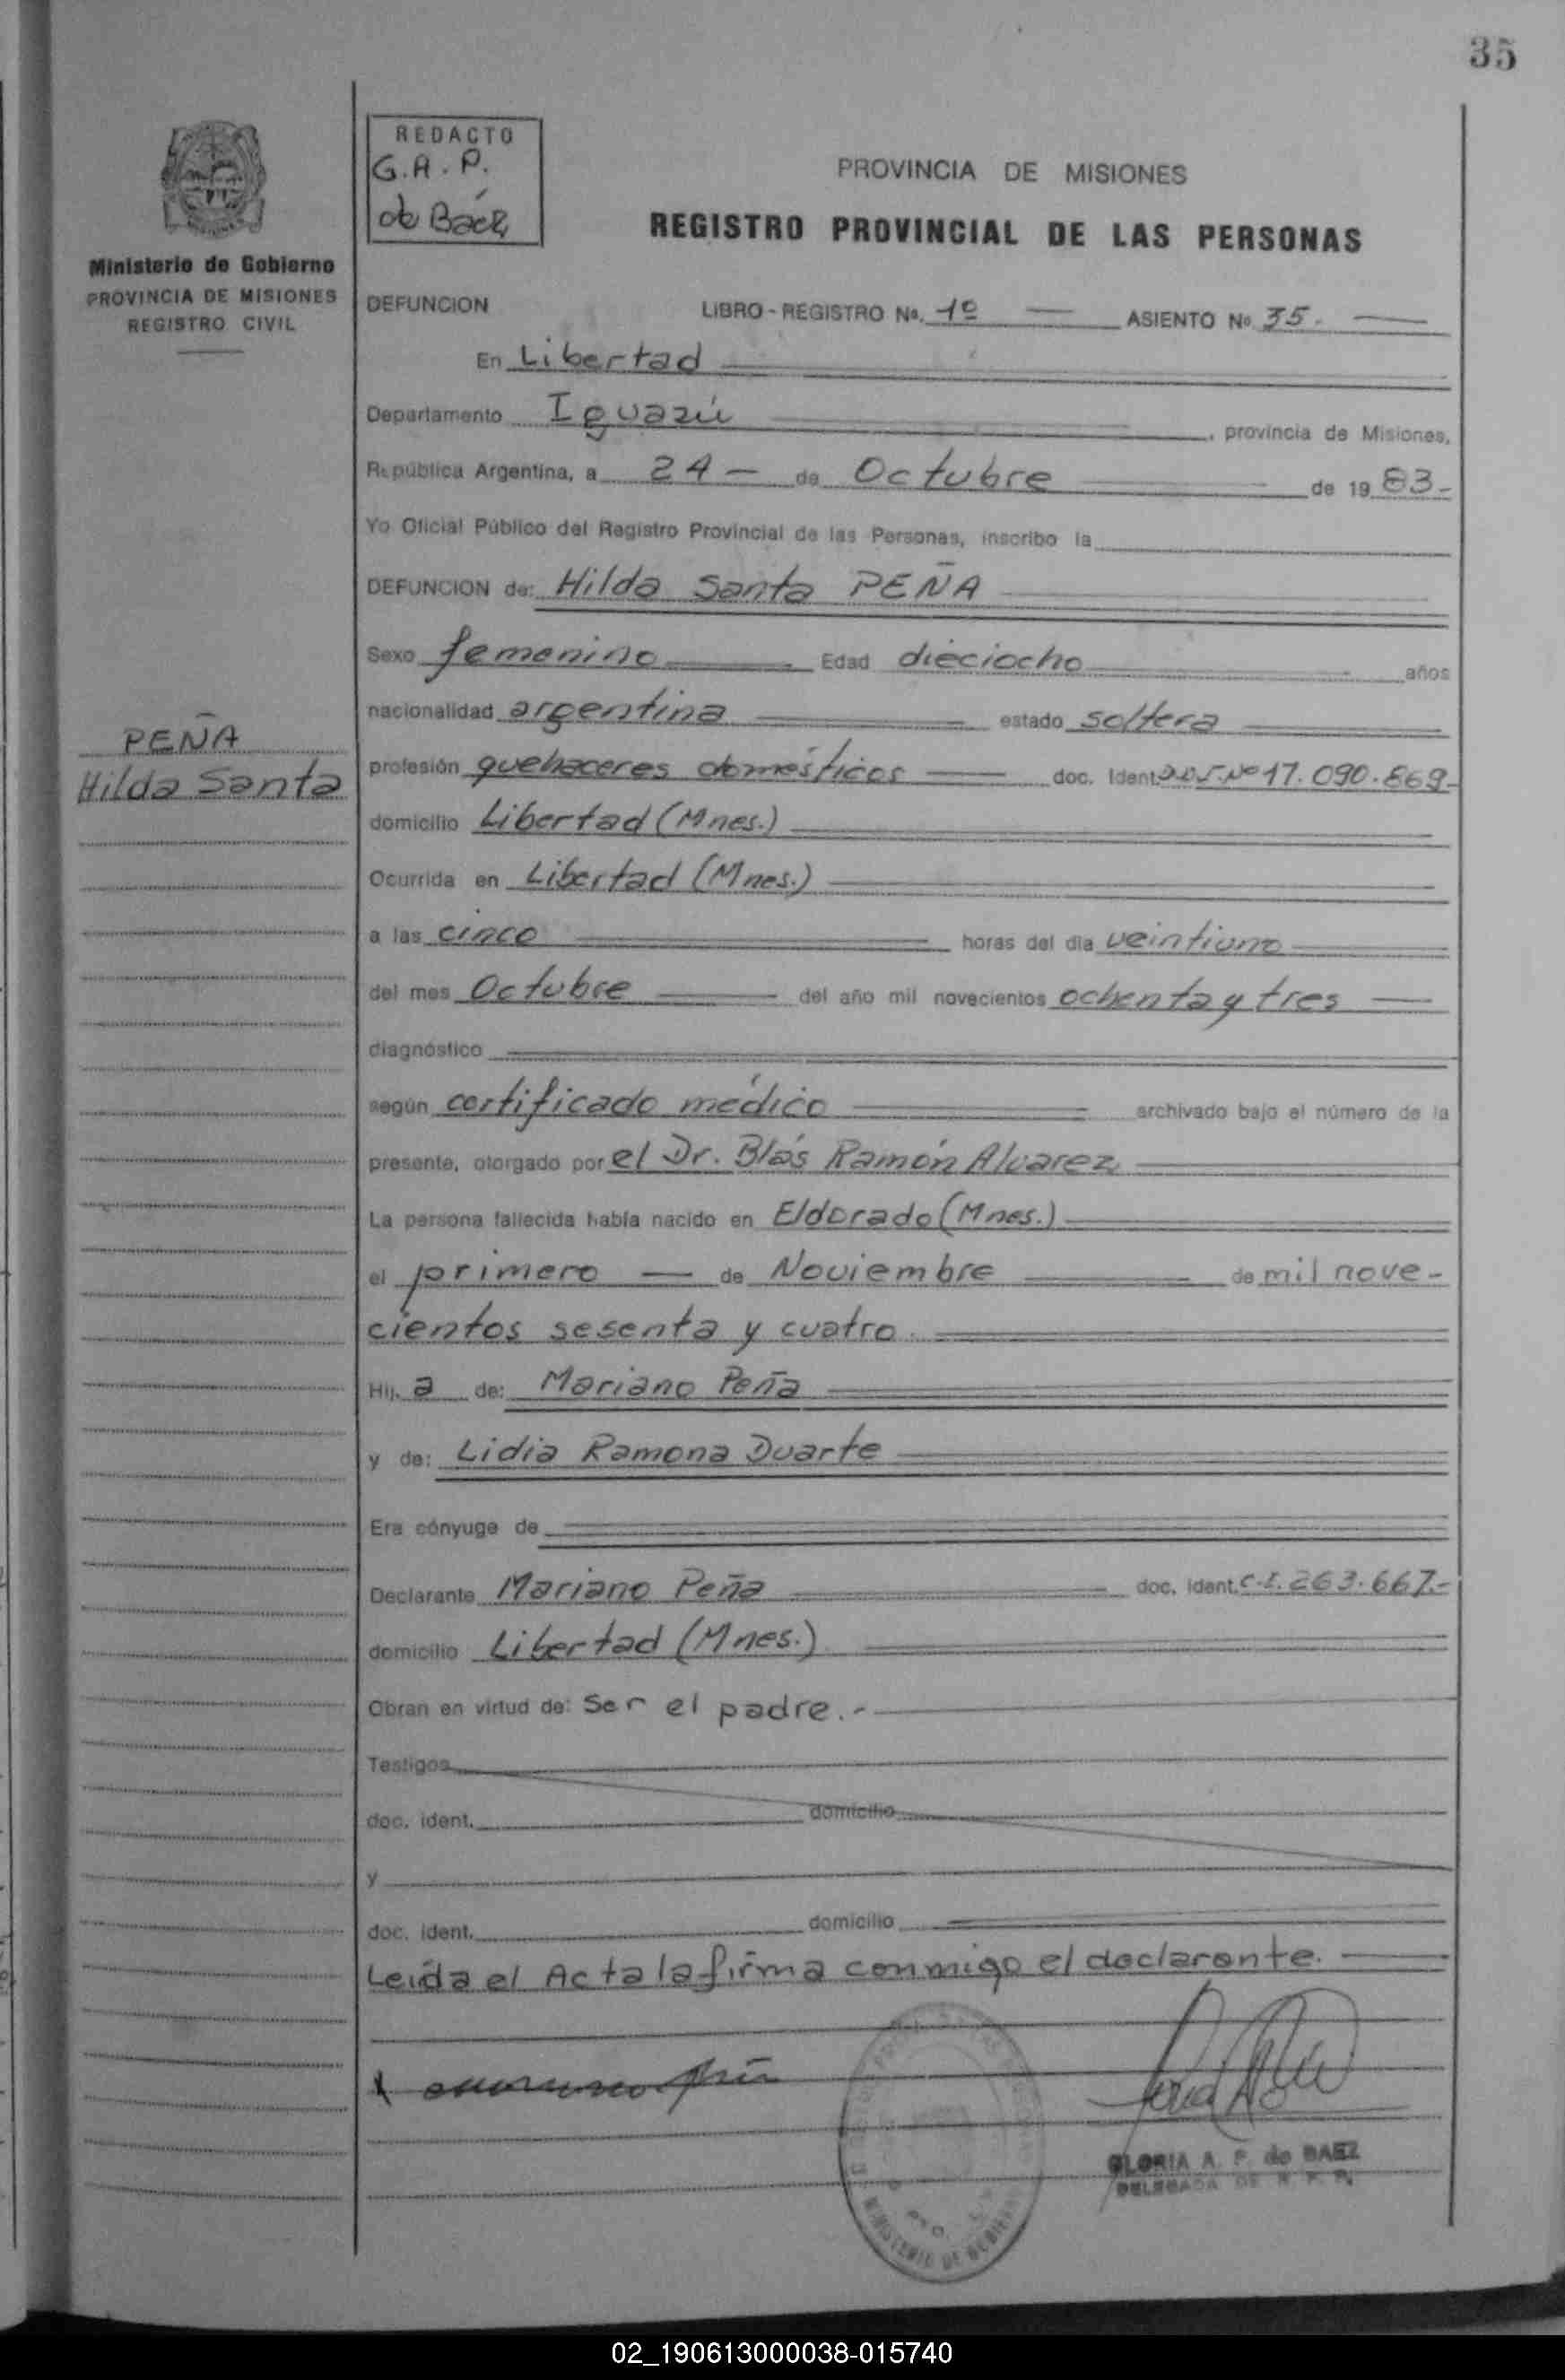 35
REDACTO
G.A.P.
de Báez
PROVINCIA DE MISIONES
REGISTRO PROVINCIAL DE LAS PERSONAS
Ministerio de Gobierno
PROVINCIA DE MISIONES
REGISTRO CIVIL
DEFUNCION LIBRO - REGISTRO Nº. 1º ASIENTO Nº 35.
En Libertad
Departamento Iguazú, provincia de Misiones,
República Argentina, a 24 - de Octubre de 19 83-
Yo Oficial Público del Registro Provincial de las Personas, inscribo la
DEFUNCION de: Hilda Santa PEÑA
Sexo femenino Edad dieciocho años
nacionalidad argentina estado soltera
PEÑA
Hilda Santa
profesión quehaceres domésticos doc. Ident. Nº 17.090.869-
domicilio Libertad (Mnes.)
Ocurrida en Libertad (Mnes.)
a las cinco horas del día veintiuno
del mes Octubre del año mil novecientos ochenta y tres
diagnóstico
según certificado médico archivado bajo el número de la
presente, otorgado por el Dr. Blás Ramón Alvarez
La persona fallecida había nacido en Eldorado (Mnes.)
el primero de Noviembre de mil nove-
cientos sesenta y cuatro.
Hij. a de: Mariano Peña
y de: Lidia Ramona Duarte
Era cónyuge de
Declarante Mariano Peña doc. ident. C.I. 263.667.-
domicilio Libertad (Mnes.)
Obran en virtud de: Ser el padre.-
Testigos
doc. ident. domicilio
y
doc. ident. domicilio
Leída el Acta la firma conmigo el declarante.
GLORIA A. P. de BAEZ
DELEGADA DE R. P. P.
MINISTERIO DE GOBIERNO
02_190613000038-015740